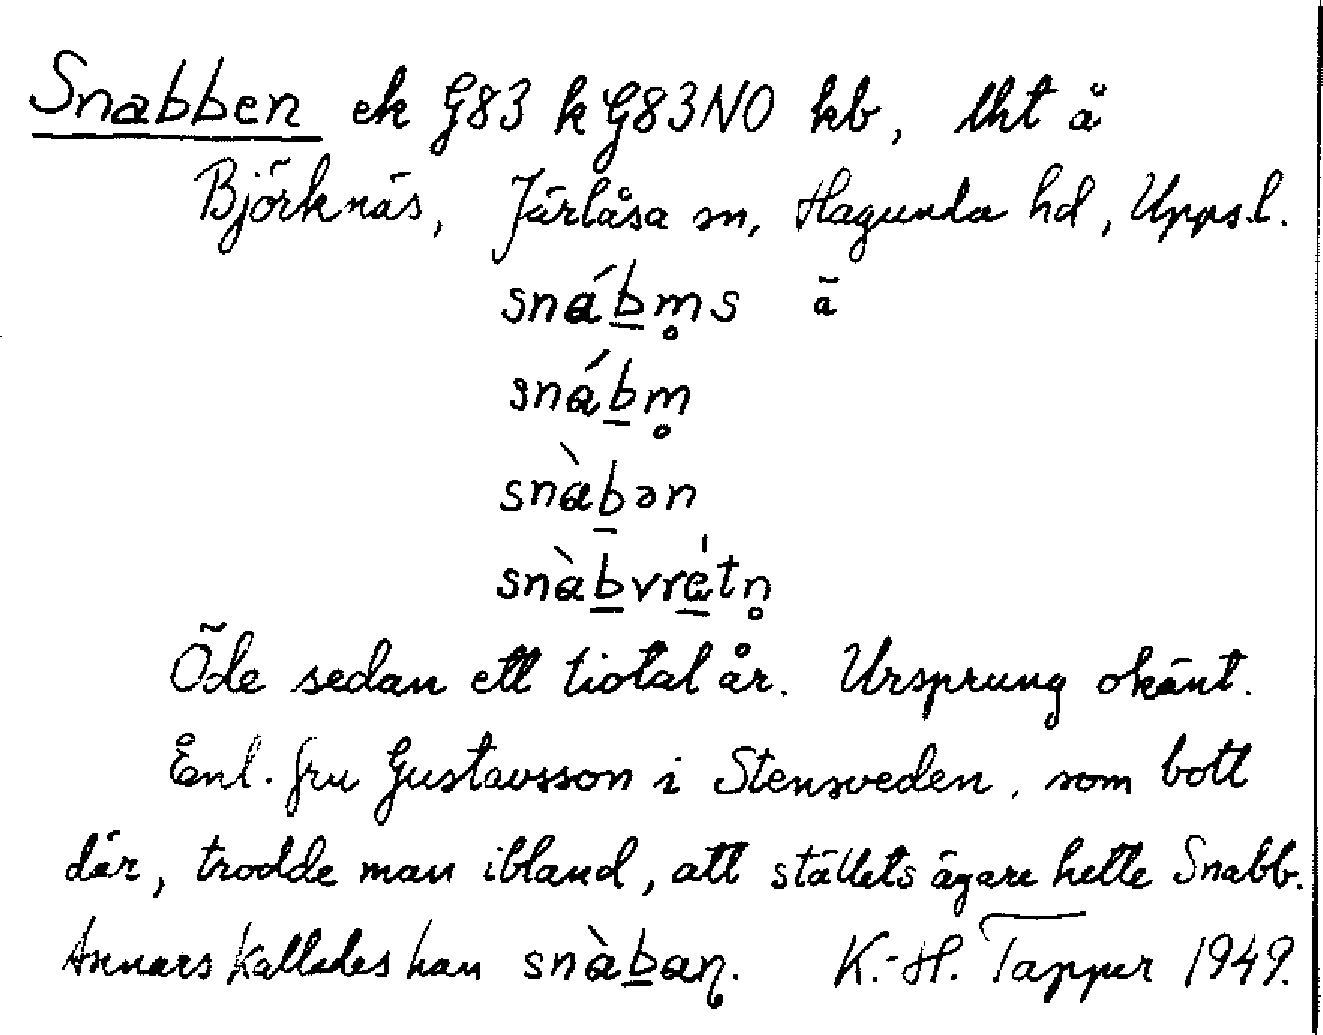 Snabben ek G83 k G83NO kb, lht å
Björknäs, Järlåsa sn, Hagunda hd, Uppsl.
snáb̲m̥s ā
snáb̲m̥
snàb̲ən
snàb̲vre̲̍tn̥
Öde sedan ett tiotal år. Ursprung okänt.
Enl. fru Gustavsson i Stensveden, som bott
där, trodde man ibland, att ställets ägare hette Snabb.
Annars kallades han snàb̲aɳ. K.-H. Tapper 1949.